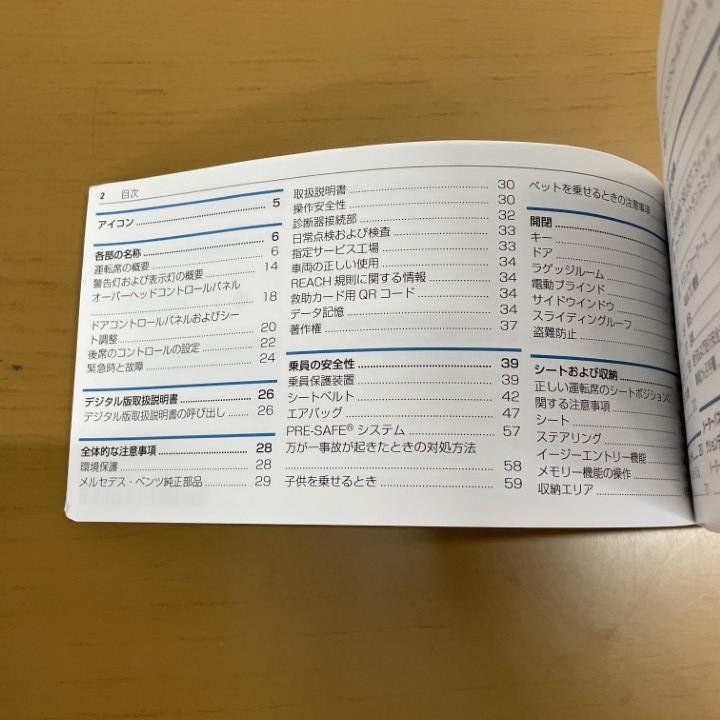 2 目次
アイコン 5
各部の名称 6
運転席の概要 6
警告灯および表示灯の概要 14
オーバーヘッドコントロールパネル
18
ドアコントロールパネルおよびシー
ト調整 20
後席のコントロールの設定 22
緊急時と故障 24
デジタル版取扱説明書 26
デジタル版取扱説明書の呼び出し 26
全体的な注意事項 28
環境保護 28
メルセデス・ベンツ純正部品 29
取扱説明書 30
操作安全性 30
診断器接続部 32
日常点検および検査 33
指定サービス工場 33
車両の正しい使用 34
REACH 規則に関する情報 34
救助カード用 QR コード 34
データ記憶 34
著作権 37
乗員の安全性 39
乗員保護装置 39
シートベルト 42
エアバッグ 47
PRE-SAFE® システム 57
万が一事故が起きたときの対処方法
58
子供を乗せるとき 59
ペットを乗せるときの注意事項
開閉
キー
ドア
ラゲッジルーム
電動ブラインド
サイドウインドウ
スライディングルーフ
盗難防止
シートおよび収納
正しい運転席のシートポジションに
関する注意事項
シート
ステアリング
イージーエントリー機能
メモリー機能の操作
収納エリア